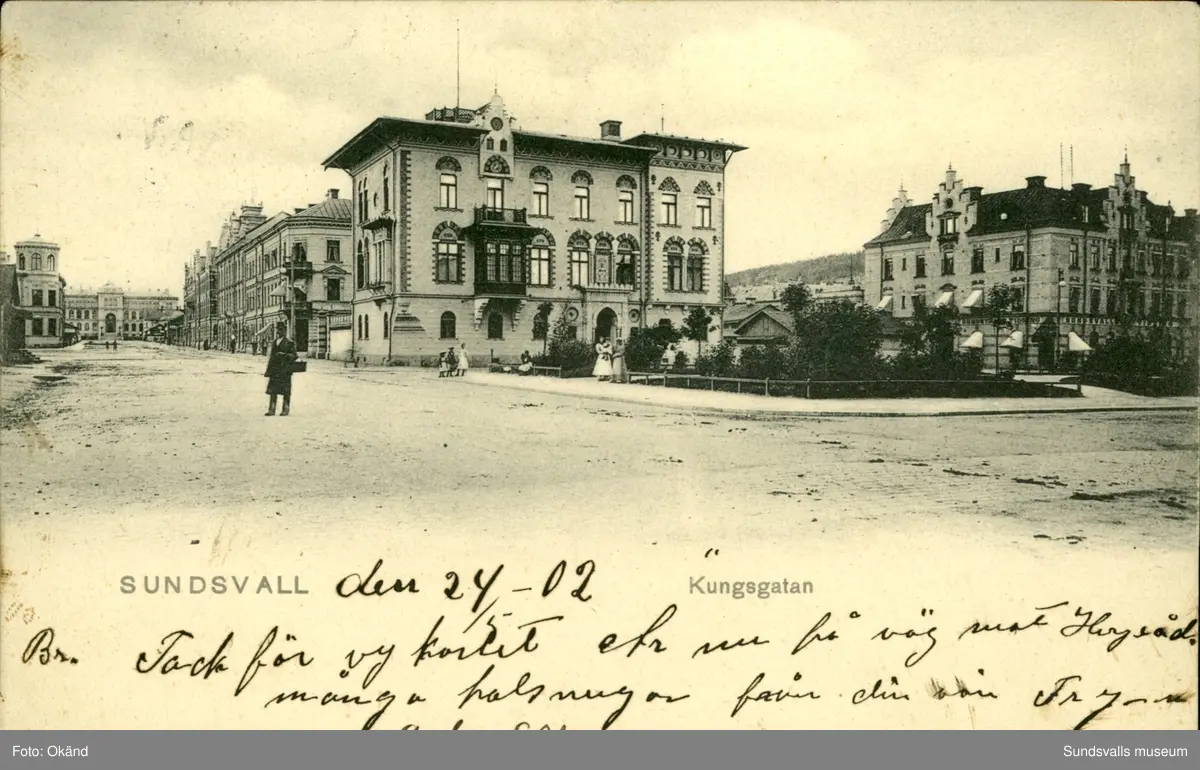 SUNDSVALL den 24/5-02 Kungsgatan
Br. Tack för vykortet är nu på väg mot
många hälsningar från din vän
Foto: Okänd
Sundsvalls museum